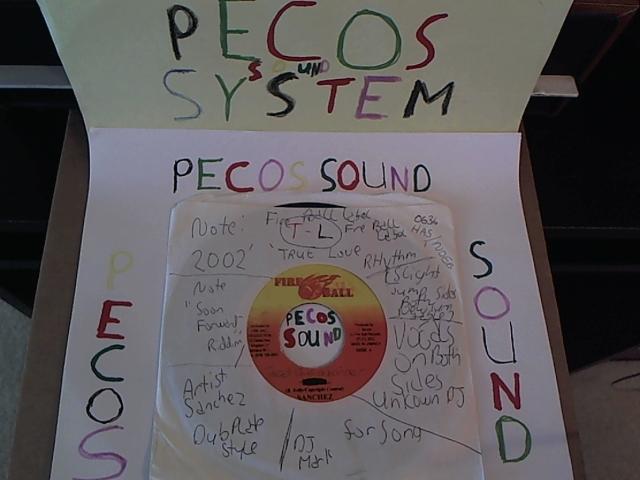 PECOS
SOUND
SYSTEM
PECOS SOUND
PECOS
SOUND
Note:
2002
Fire Ball Label
T-L
Fire Ball
Label
'TRUE Love'
RHythm
0636
Slight
Jump Both Sides
Note
"Soon
Forward"
Riddim
FIRE BALL
PECOS
SOUND
All Rights/Copyrights Control
SANCHEZ
Vocals
On Both
Sides
Unkown DJ
for Song
Artist
Sanchez
DubPlate
Style
DJ
Mark